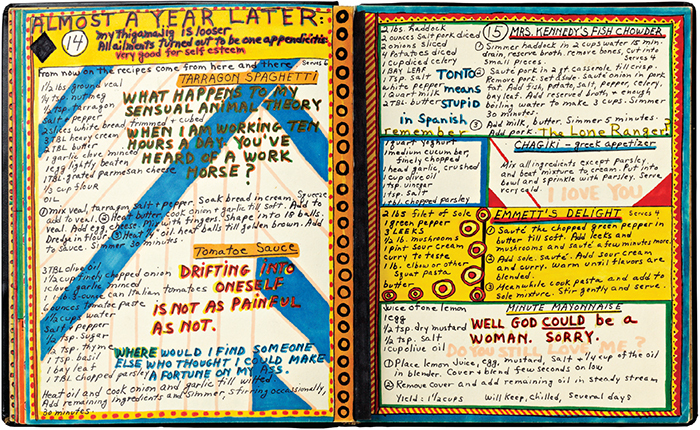 ALMOST A YEAR LATER:
14
my Thigamajig is looser
All ailments Turned out to be one appendicitis.
very good for self esteem
From now on the recipes come from here and there
Serves 6
TARRAGON SPAGHETTI
1½ lbs ground veal
tsp. nutmeg
tsp. tarragon
Salt + pepper
2 slices white bread, trimmed + cubed
TBL. heavy cream
TBL. butter
1 garlic clove minced
1 egg lightly beaten
1 TBL. grated parmesan cheese
⅓ cup flour
OIL
WHAT HAPPENS TO MY
SENSUAL ANIMAL THEORY
WHEN I AM WORKING TEN
HOURS A DAY. YOU'VE
HEARD OF A WORK
HORSE?
① mix veal, tarragon salt + pepper. Soak bread in cream. Squeeze
add to veal. ② Heat butter cook onion + garlic till soft. Add to
veal. Add egg, cheese. Mix with fingers. Shape into 18 balls.
Dredge in flour. ③ Heat oil. heat balls till golden brown. Add
to sauce. Simmer 30 minutes.
Tomatoe Sauce
3 TBL olive oil
1½ cups finely chopped onion
1 clove garlic minced
1 1 lb. 3-ounce can Italian tomatoes
6 ounces tomatoe paste
1½ cups water
Salt + pepper
½ tsp. sugar
½ tsp. thyme
1 tsp. basil
1 bay leaf
1 TBL chopped parsley
DRIFTING INTO
ONESELF
IS NOT AS PAINFUL
AS NOT.
WHERE WOULD I FIND SOMEONE
ELSE WHO THOUGHT I COULD MAKE
A FORTUNE ON MY ASS.
Heat oil and cook onion and garlic till wilted.
Add remaining ingredients and simmer, stirring occasionally,
30 minutes.
15
MRS. KENNEDY'S FISH CHOWDER
Serves 4
2 lbs. haddock
2 ounces Salt pork diced
2 onions sliced
4 Potatoes diced
1 cup diced celery
1 BAY LEAF
1 tsp. Salt
white pepper
1 quart milk
2 TBL. butter
① Simmer haddock in 2 cups water 15 min.
drain, reserve broth, remove bones, cut into
1 in. pieces.
② Saute pork in 2 qt. casserole till crisp.
Remove pork. set aside. sauté onion in pork
fat. Add fish, potato, salt, pepper, celery,
bay leaf. Add reserved broth + enough
boiling water to make 3 cups. Simmer
30 minutes.
③ Add milk, butter. Simmer 5 minutes.
Add pork.
TONTO
means
STUPID
in Spanish
remember
The Lone Ranger?
CHAGIKI - greek appetizer
1 quart yoghurt
1 medium cucumber,
finely chopped
1 head garlic, crushed
1 cup olive oil
1 tsp. vinegar
1 tsp. salt
1 TBL. chopped parsley
Mix all ingredients except parsley
and beat mixture to cream. Put into
bowl and sprinkle with parsley. Serve
very cold.
I LOVE YOU
EMMETT'S DELIGHT
Serves 4
2 lbs filet of sole
1 green pepper
3 LEEKS
½ lb. mushrooms
1 pint sour cream
curry to taste
1 lb. elbow or other
Squat pasta
butter
① Sauté the chopped green pepper in
butter till soft. Add leeks and
mushrooms and sauté a few minutes more.
② Add sole. sauté. Add sour cream
and curry. Warm until flavors are
blended.
③ Meanwhile cook pasta and add to
sole mixture. Stir gently and serve
MINUTE MAYONNAISE
Juice of one lemon
1 egg
½ tsp. dry mustard
½ tsp. Salt
1 cup olive oil
WELL GOD COULD be a
WOMAN. SORRY.
DO YOU STILL LOVE ME?
① Place lemon juice, egg, mustard, salt + ¼ cup of the oil
in blender. Cover + blend few seconds on low
② Remove cover and add remaining oil in steady stream
Yield: 1¼ cups
Will keep, chilled, several days